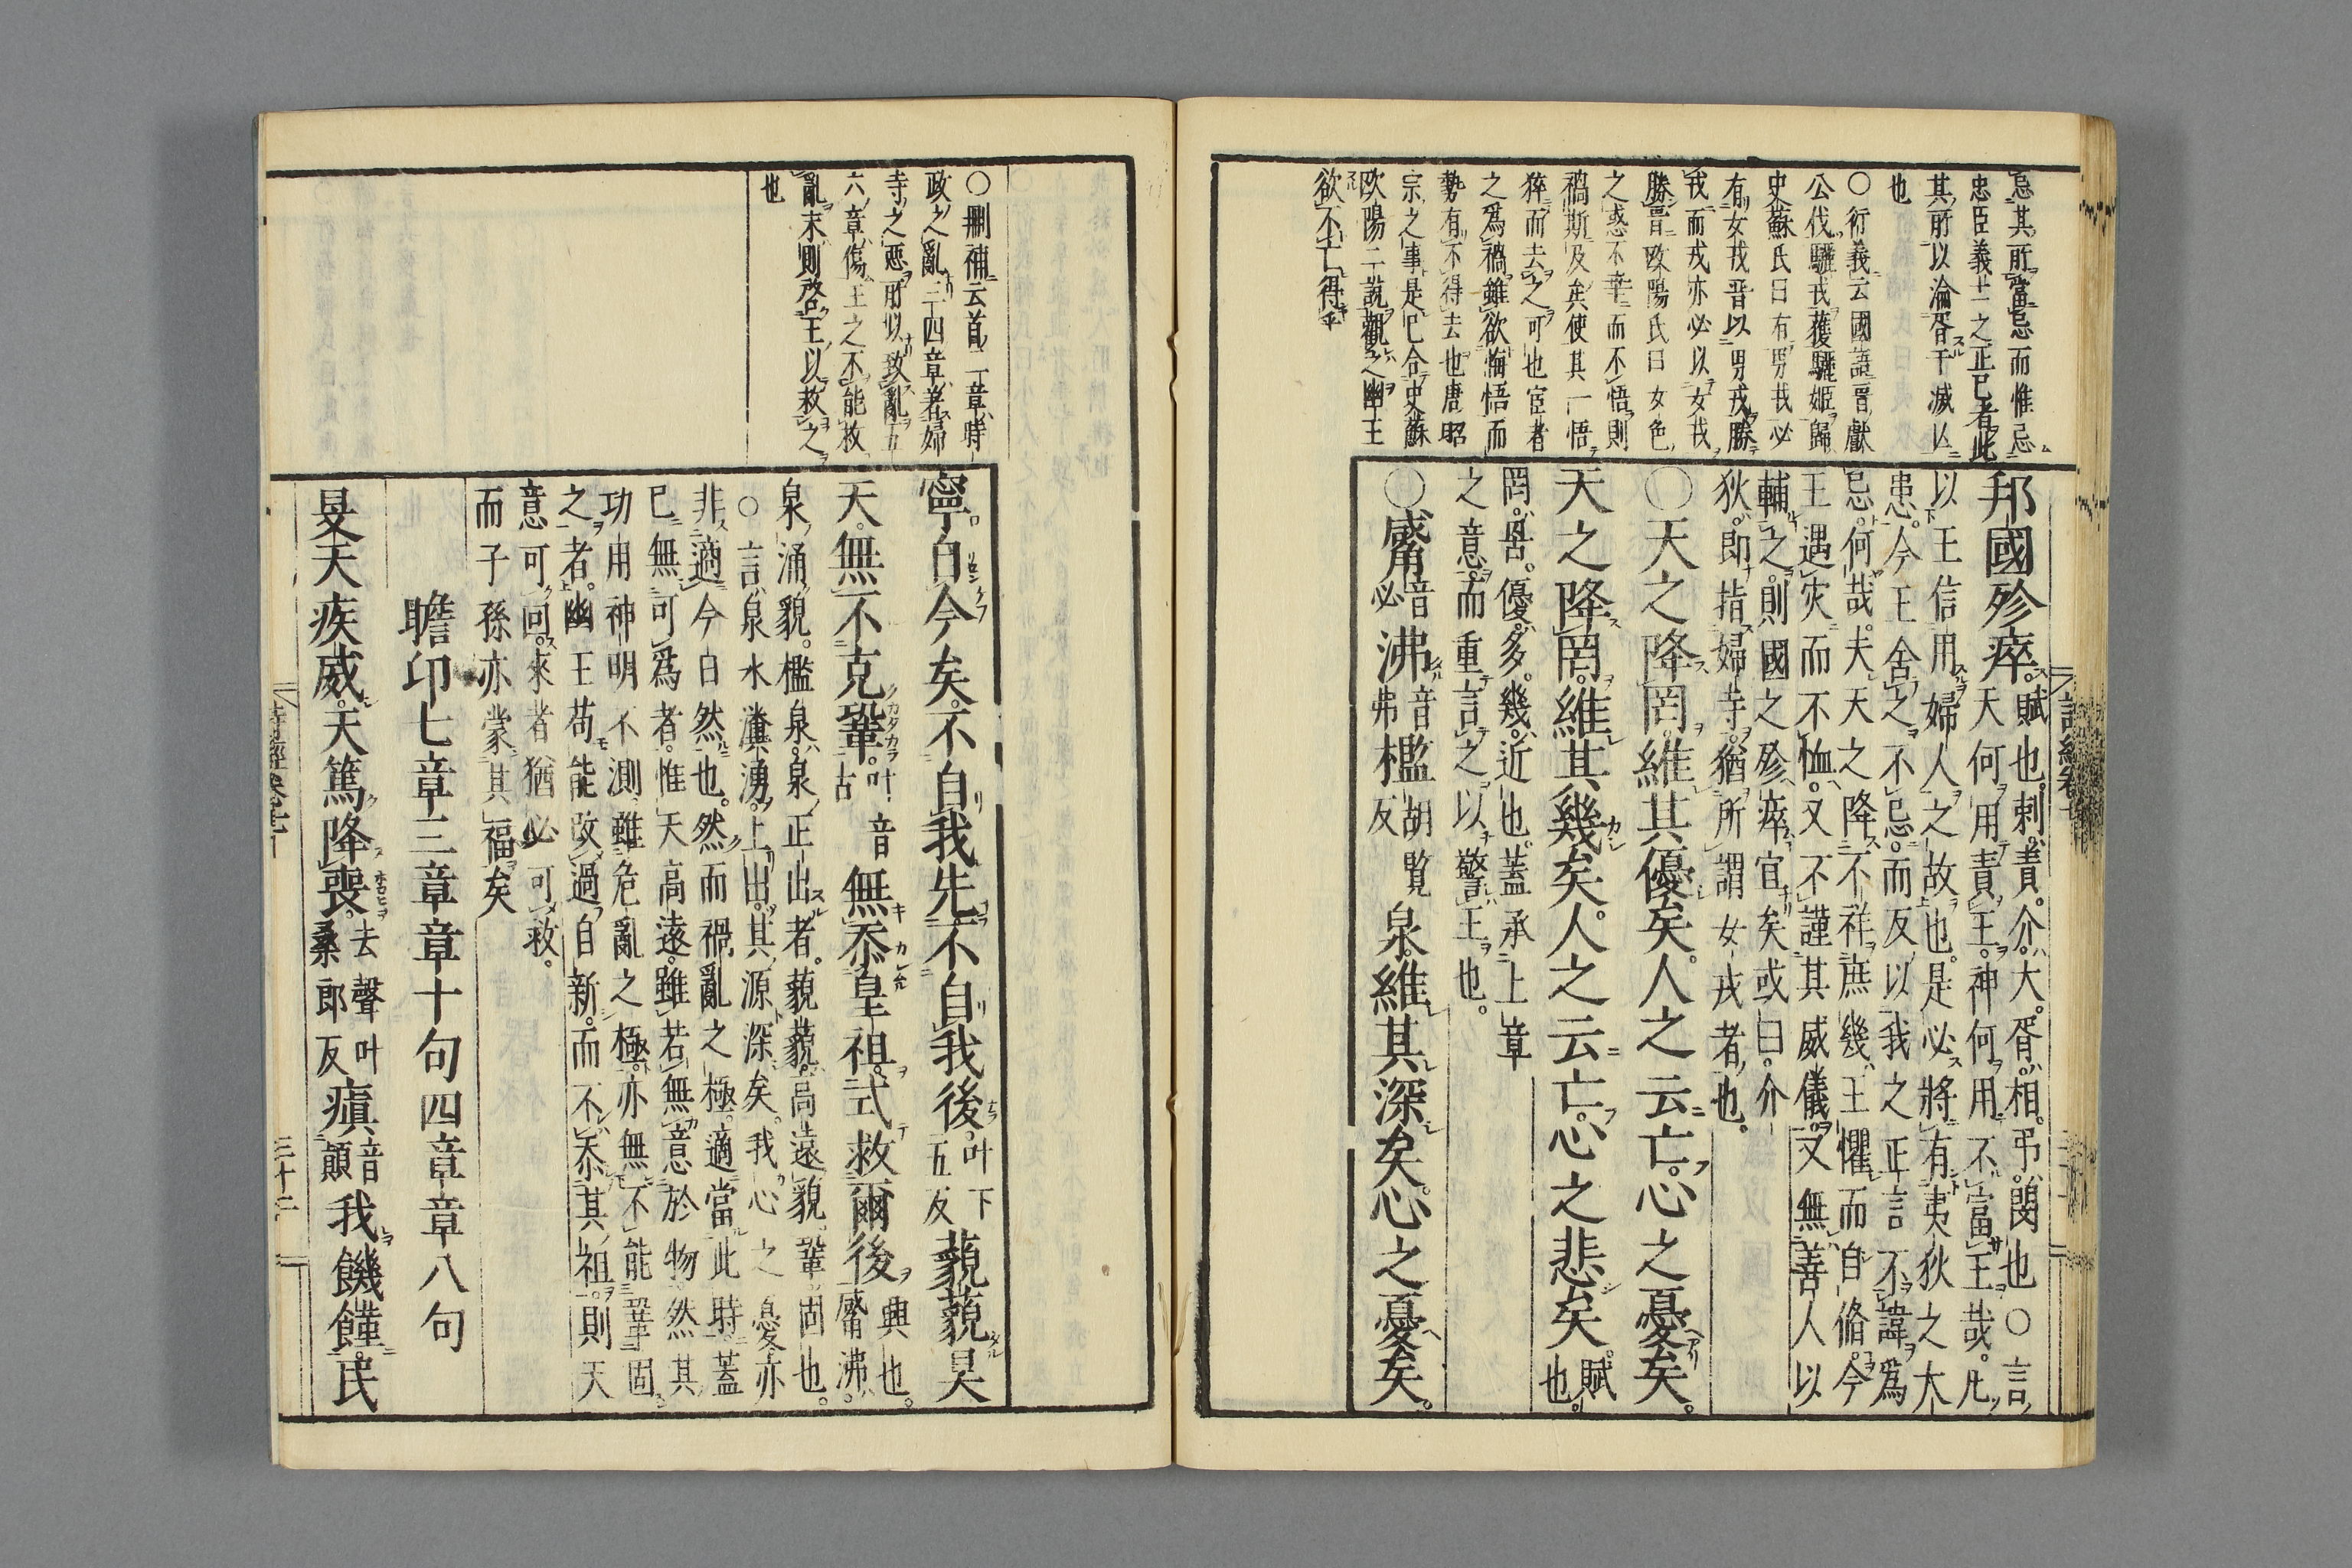 忌其所當忌而惟忌
忠臣義士之正已者此
其所以淪胥干滅亾
也
○衍義云國語晋獻
公伐驪戎獲驪姬歸
史蘇氏曰有男戎必
有女戎晋以男戎勝
戎而戎亦必以女戎
勝晋歐陽氏曰女色
之惑不幸而不悟則
禍斯及矣使其一悟
猝而去之可也宦者
之爲禍雖欲悔悟而
勢有不得去也唐昭
宗之事是已合史蘇
歐陽二說觀之幽王
欲不亡得乎
邦國殄瘁。賦也。刺。責。介。大。胥。相。弔。閔也○言
天何用責王。神何用不富王哉。凡
以王信用婦人之故也。是必將有夷狄之大
患。今王舍之不忌。而反以我之正言不諱爲
忌。何哉。夫天之降不祥。庶幾王懼而自脩。今
王遇灾而不恤。又不謹其威儀。又無善人以
輔之。則國之殄瘁宜矣。或曰。介
狄。即指婦寺。猶所謂女戎者也。
○天之降罔。維其優矣。人之云亡。心之憂矣。
天之降罔。維其幾矣。人之云亡。心之悲矣。賦也。
罔。罟。優。多。幾。近也。蓋承上章
之意。而重言之。以警王也。
○觱音必沸音弗檻胡覧反泉。維其深矣。心之憂矣。
詩經卷七
○刪補云首二章時
政之亂三四章着婦
寺之惡所以致亂五
六章傷王之不能救
亂末則啓王以救之
也
寧自今矣。不自我先。不自我後。叶下五反藐藐昊
天。無不克鞏。叶音古無忝皇祖。式救爾後。興也。觱沸。
泉涌貌。檻泉。泉正出者。藐藐。高遠貌鞏固也。
○言泉水瀵湧。上出。其源深矣。我心之憂亦
非適今日然也。然而禍亂之極。適當此時蓋
已無可爲者。惟天高遠。雖若無意於物然其
功用神明不測。雖危亂之極。亦無不能鞏固
之者。幽王苟能改過自新。而不忝其祖。則天
意可回。來者猶必可救。
而子孫亦蒙其福矣
瞻卬七章三章章十句四章章八句
旻天疾威。天篤降喪。去聲叶桑郎反瘨音顛我饑饉。民
詩經卷七
三十二